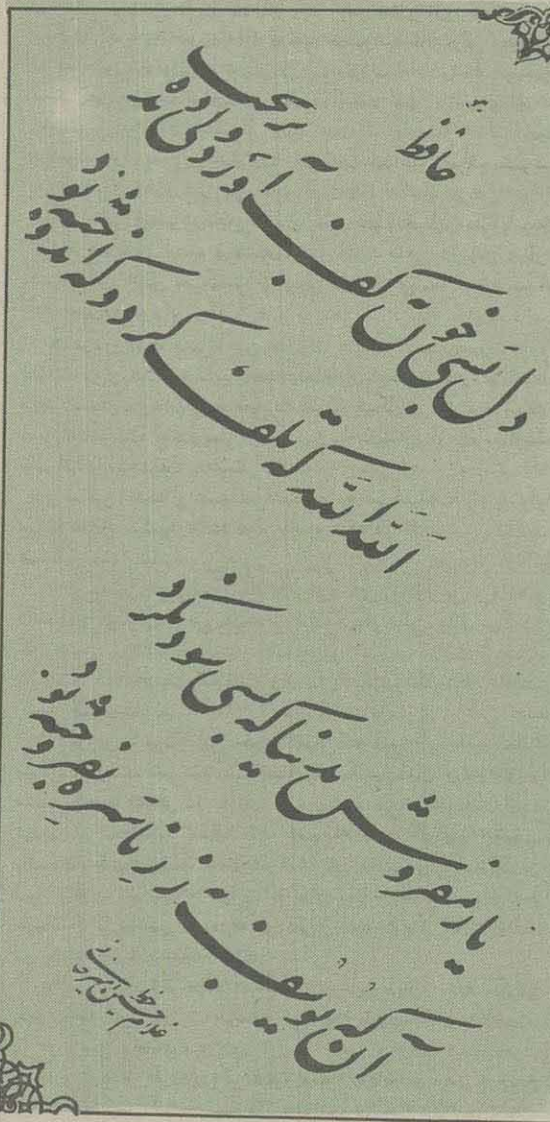 حافظ
دل بسی خون بکف آورد ولی دیده بریخت
اَللّه اَللّه که تلف کرد و که اندوخته بود
یار مفروش بدنیا که بسی سود نکرد
آن که یوسف به زرِ ناسره بفروخته بود
خط غلامحسین امیرخانی